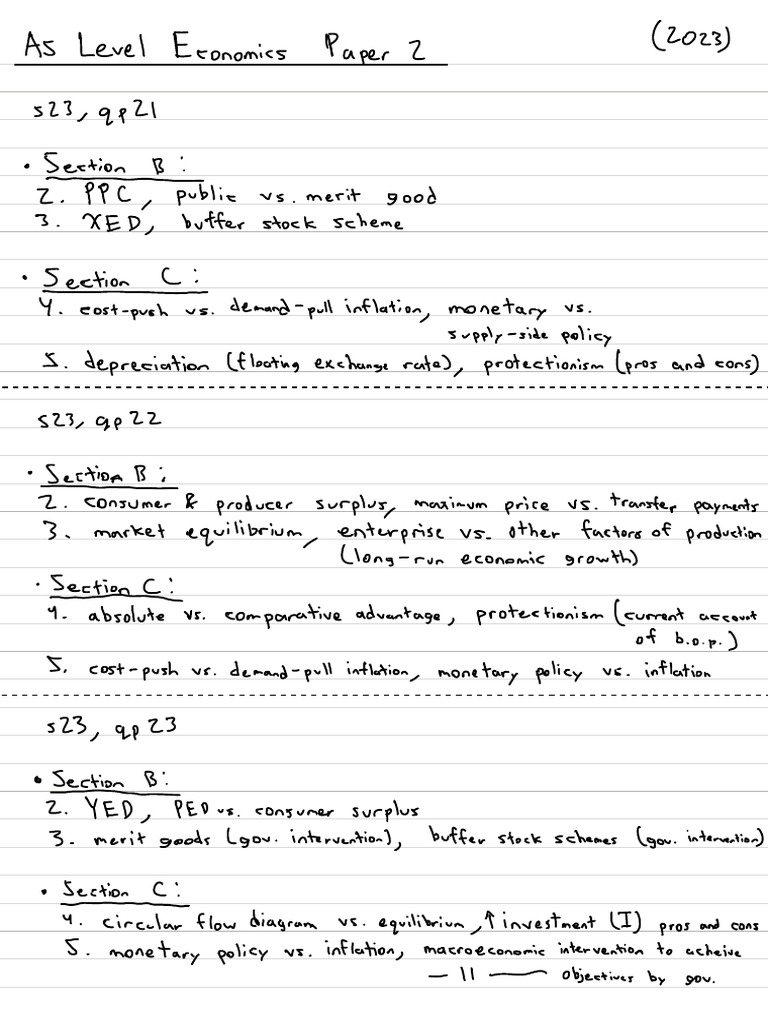 As Level Economics Paper 2 (2023)
s23, qp21
• Section B:
2. PPC, public vs. merit good
3. XED, buffer stock scheme
• Section C:
4. cost-push vs. demand-pull inflation, monetary vs.
supply-side policy
5. depreciation (floating exchange rate), protectionism (pros and cons)
s23, qp22
• Section B:
2. consumer & producer surplus, maximum price vs. transfer payments
3. market equilibrium, enterprise vs. other factors of production
(long-run economic growth)
• Section C:
4. absolute vs. comparative advantage, protectionism (current account
of b.o.p.)
5. cost-push vs. demand-pull inflation, monetary policy vs. inflation
s23, qp23
• Section B:
2. YED, PED vs. consumer surplus
3. merit goods (gov. intervention), buffer stock schemes (gov. intervention)
• Section C:
4. circular flow diagram vs. equilibrium, ↑ investment (I) pros and cons
5. monetary policy vs. inflation, macroeconomic intervention to acheive
— 11 — objectives by gov.